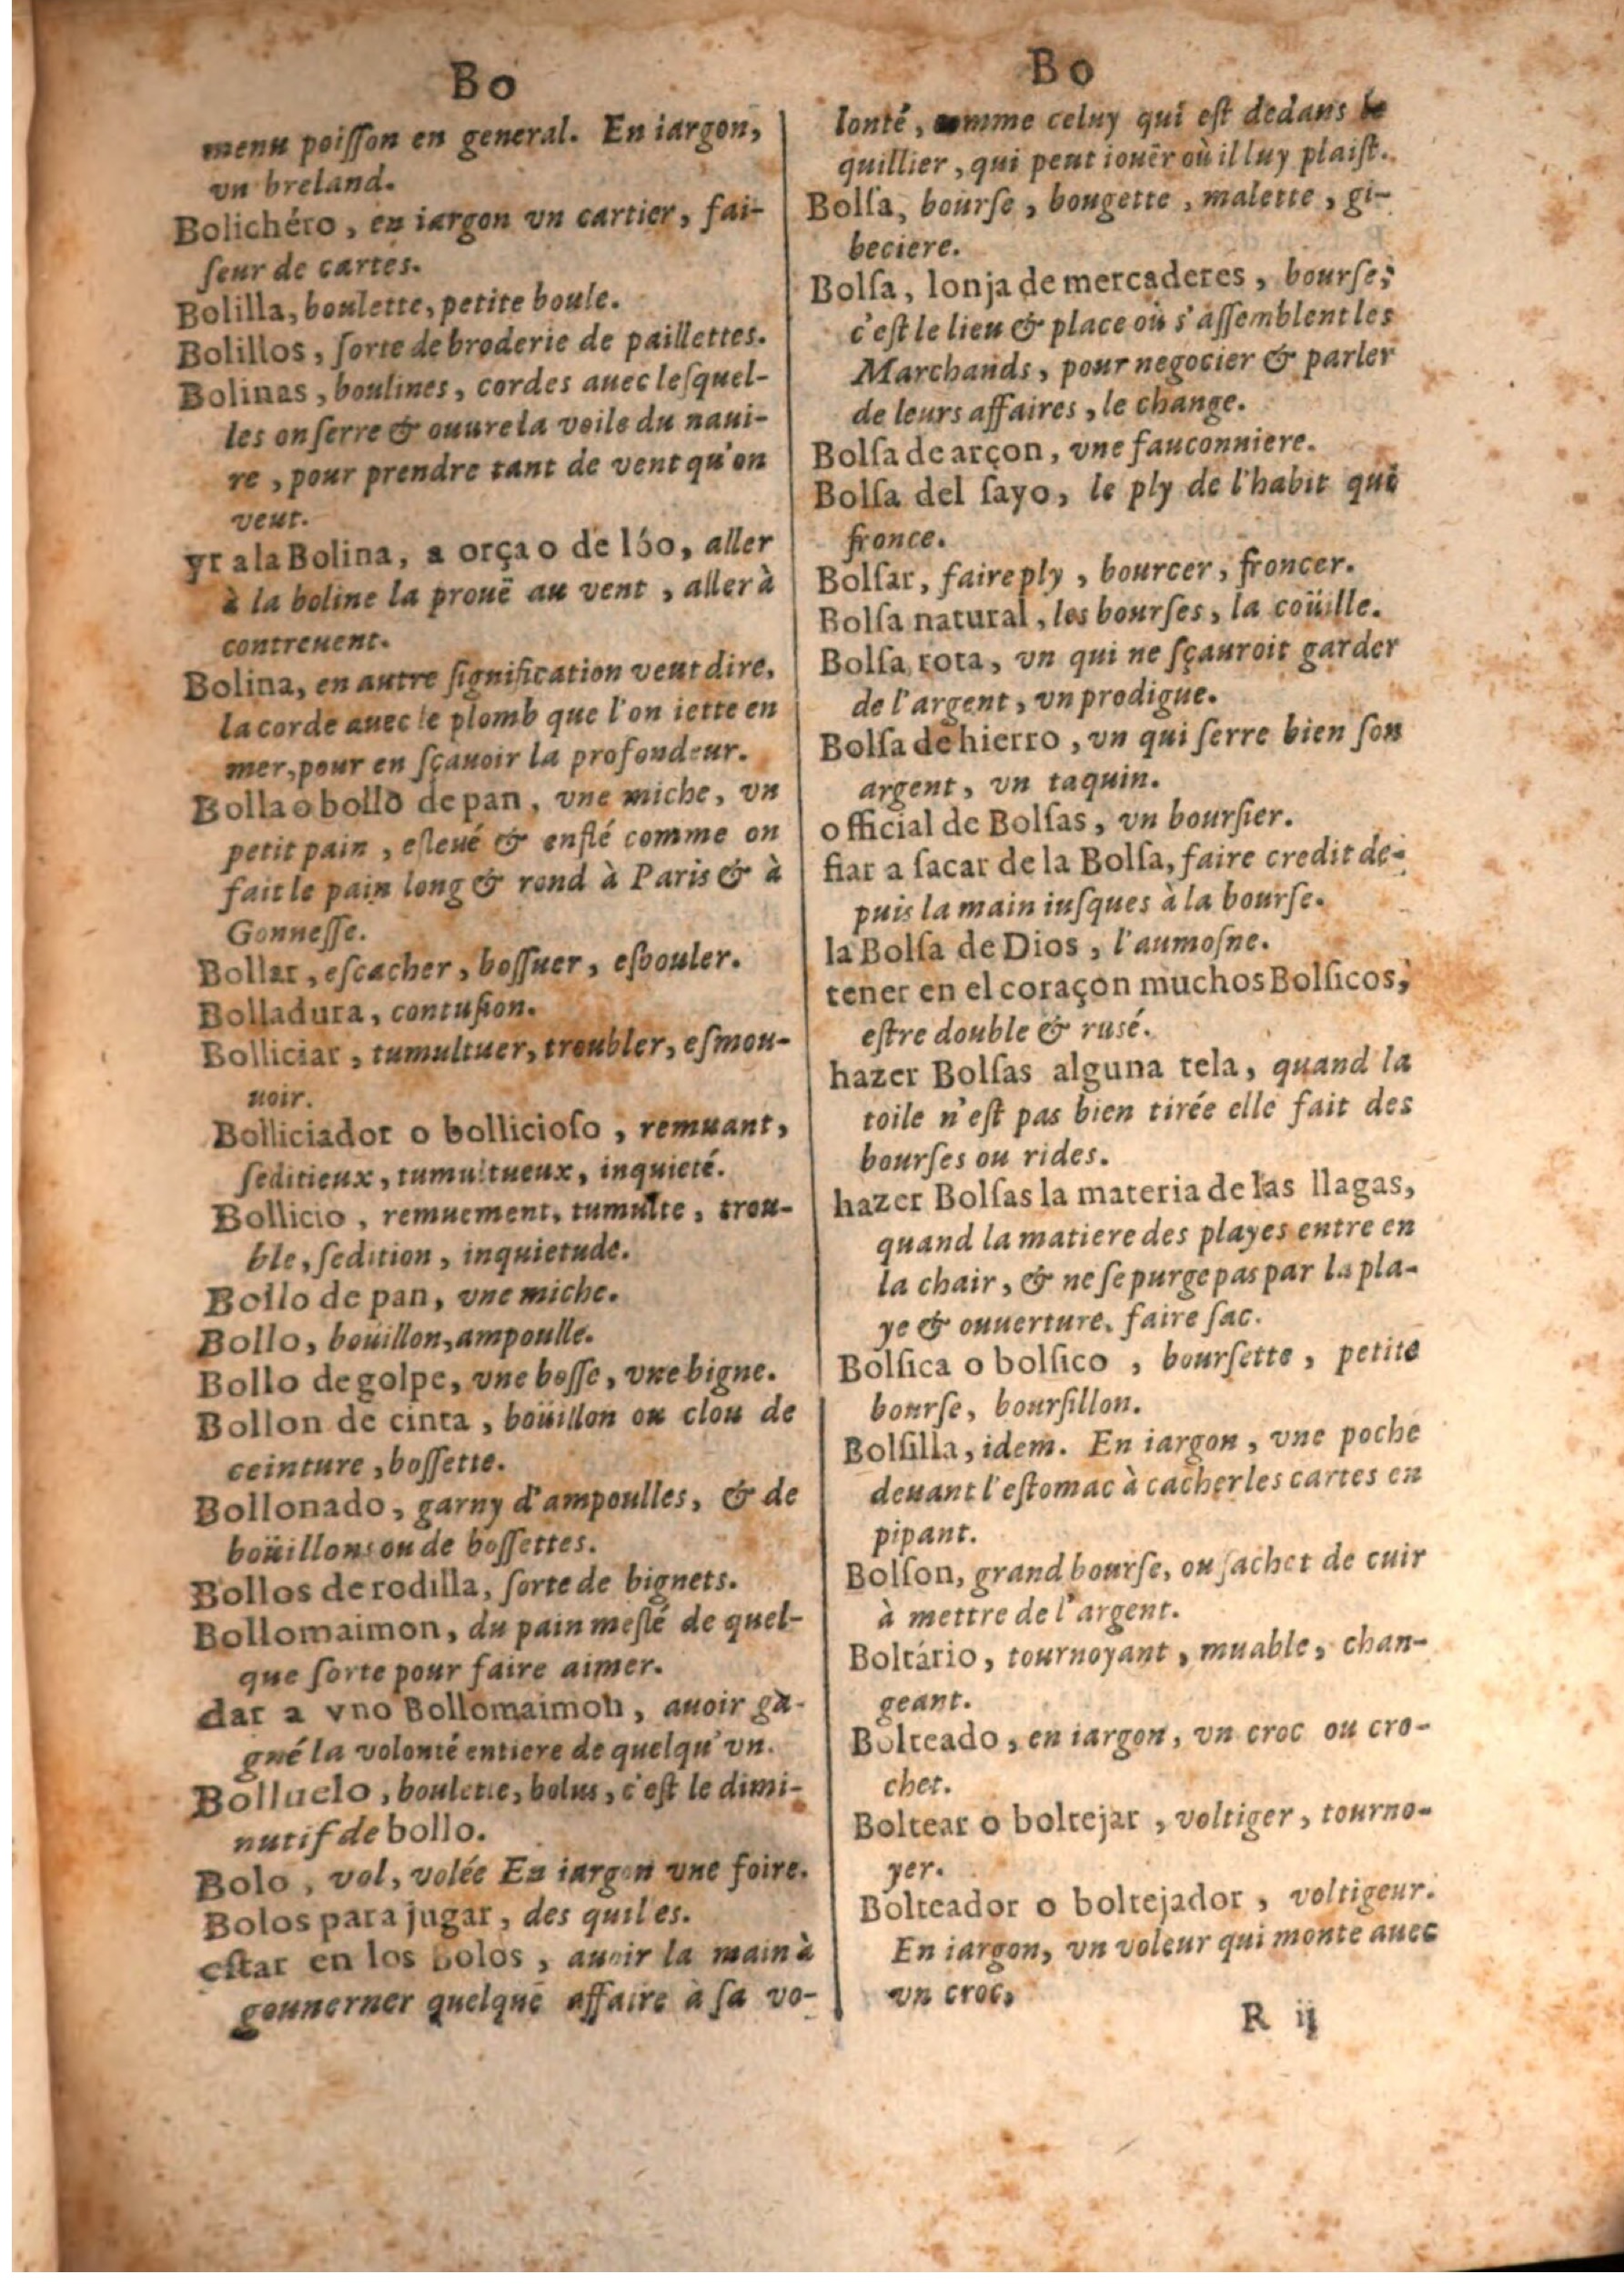 Bo
menu poiſſon en general. En iargon,
vn breland.
Bolichéro, en iargon vn cartier, fai-
ſeur de cartes.
Bolilla, boulette, petite boule.
Bolillos, ſorte de broderie de paillettes.
Bolinas, boulines, cordes auec leſquel-
les on ſerre & ouure la voile du naui-
re, pour prendre tant de vent qu'on
veut.
yr a la Bolina, a orça o de ló o, aller
à la boline la prouë au vent, aller à
contreuent.
Bolina, en autre ſignification veut dire,
la corde auec le plomb que l'on iette en
mer, pour en ſçauoir la profondeur.
Bolla o bollo de pan, vne miche, vn
petit pain, eſleué & enflé comme on
fait le pain long & rond à Paris & à
Gonneſſe.
Bollar, eſcacher, boſſuer, eſbouler.
Bolladura, contuſion.
Bolliciar, tumultuer, troubler, eſmou-
uoir.
Bolliciador o bollicioſo, remuant,
ſeditieux, tumultueux, inquieté.
Bollicio, remuement, tumulte, trou-
ble, ſedition, inquietude.
Bollo de pan, vne miche.
Bollo, boüillon, ampoulle.
Bollo de golpe, vne boſſe, vne bigne.
Bollon de cinta, boüillon ou clou de
ceinture, boſſette.
Bollonado, garny d'ampoulles, & de
boüillons ou de boſſettes.
Bollos de rodilla, ſorte de bignets.
Bollomaimon, du pain meſlé de quel-
que ſorte pour faire aimer.
dar a vno Bollomaimon, auoir ga-
gné la volonté entiere de quelqu'vn.
Bolluelo, boulette, bolus, c'eſt le dimi-
nutif de bollo.
Bolo, vol, volée En iargon vne foire.
Bolos para jugar, des quilles.
eſtar en los bolos, auoir la main à
gouuerner quelque affaire à ſa vo-
Bo
lonté, comme celuy qui eſt dedans le
quillier, qui peut iouër où il luy plaiſt.
Bolſa, bourſe, bougette, malette, gi-
beciere.
Bolſa, lonja de mercaderes, bourſe,
c'eſt le lieu & place où s'aſſemblent les
Marchands, pour negocier & parler
de leurs affaires, le change.
Bolſa de arçon, vne fauconniere.
Bolſa del ſayo, le ply de l'habit qui
fronce.
Bolſar, faire ply, bourcer, froncer.
Bolſa natural, les bourſes, la coüille.
Bolſa rota, vn qui ne ſçauroit garder
de l'argent, vn prodigue.
Bolſa de hierro, vn qui ſerre bien ſon
argent, vn taquin.
official de Bolſas, vn bourſier.
fiar a ſacar de la Bolſa, faire credit de-
puis la main iuſques à la bourſe.
la Bolſa de Dios, l'aumoſne.
tener en el coraçon muchos Bolſicos,
eſtre double & rusé.
hazer Bolſas alguna tela, quand la
toile n'eſt pas bien tirée elle fait des
bourſes ou rides.
hazer Bolſas la materia de las llagas,
quand la matiere des playes entre en
la chair, & ne ſe purge pas par la pla-
ye & ouuerture, faire ſac.
Bolſica o bolſico, bourſette, petite
bourſe, bourſillon.
Bolſilla, idem. En iargon, vne poche
deuant l'eſtomac à cacher les cartes en
pipant.
Bolſon, grand bourſe, ou ſachet de cuir
à mettre de l'argent.
Boltário, tournoyant, muable, chan-
geant.
Bolteado, en iargon, vn croc ou cro-
chet.
Boltear o boltejar, voltiger, tourno-
yer.
Bolteador o boltejador, voltigeur.
En iargon, vn voleur qui monte auec
vn croc,
R ij